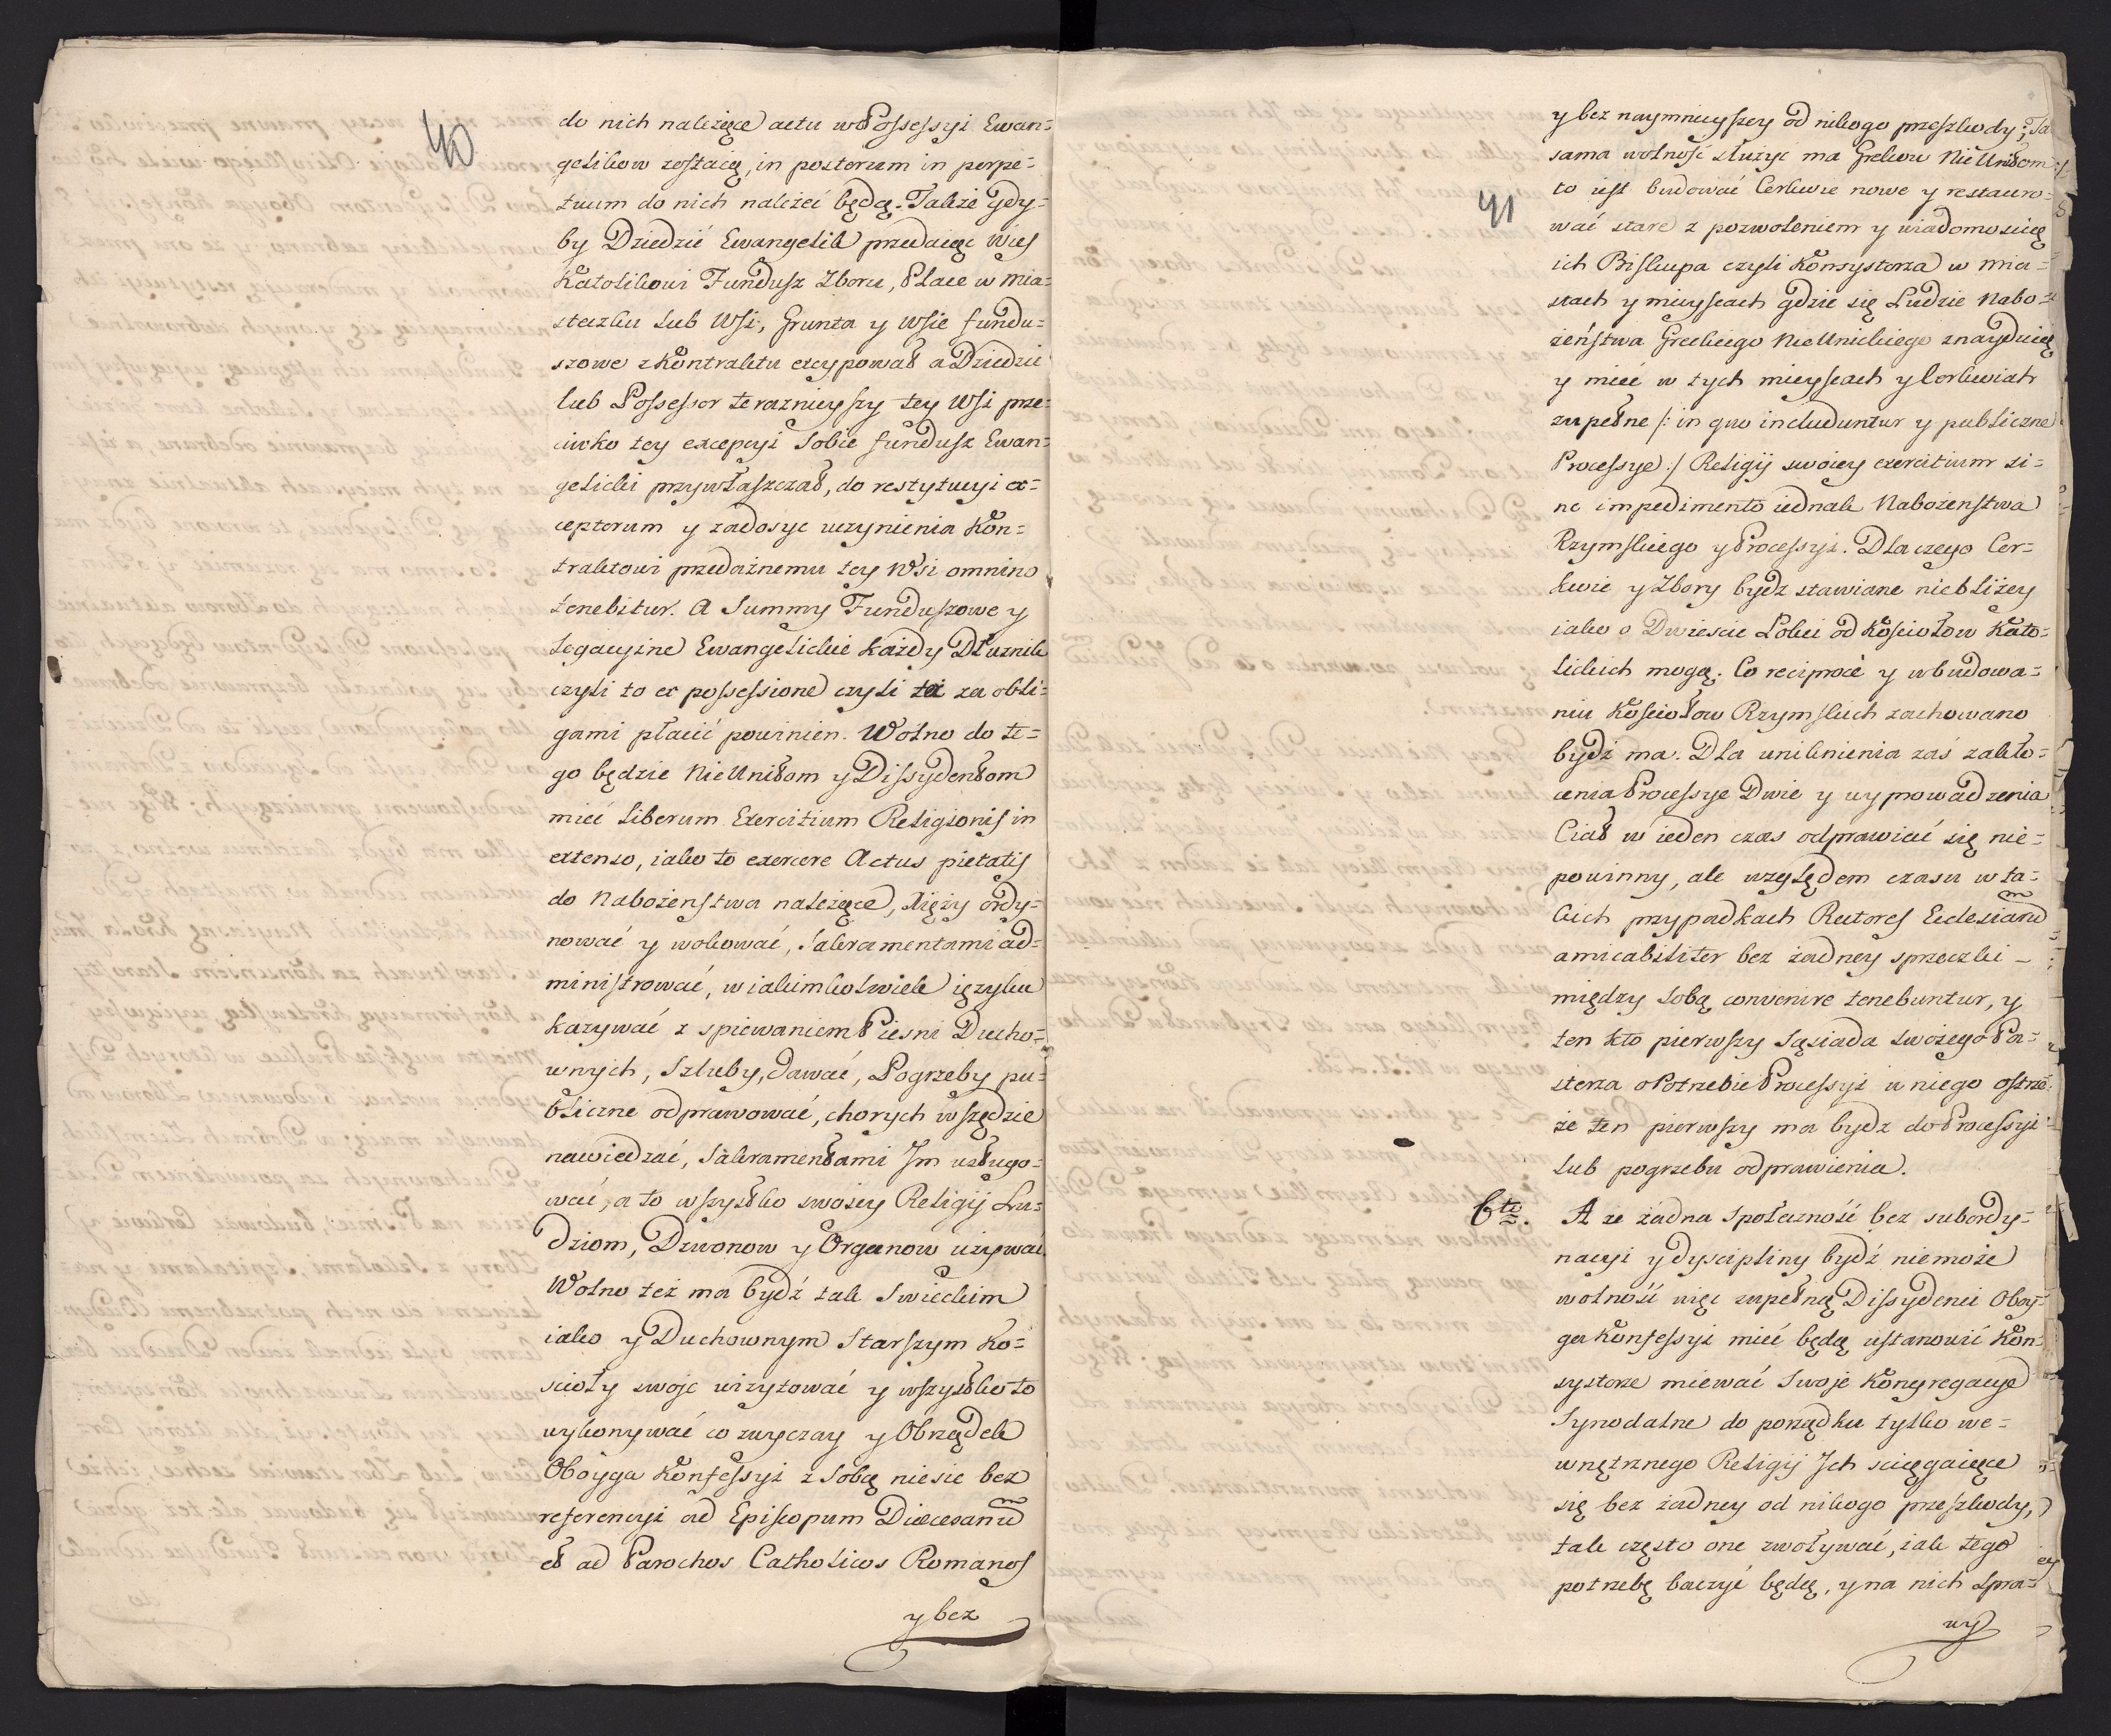 40
do nich należące actu w Possessyi Ewan=
gelikow zostaią, in posterum in perpe=
tuum do nich należeć będą. Także gdy=
by Dziedzić Ewangelik przedaiąc Wieś
Katolikowi Fundusz Zboru, Place w mia=
steczku lub Wsi, Grunta y Wsie fundu=
szowe z Kontraktu excypował a Dziedzic
lub Possessor teraznieyszy tey Wsi prze=
ciwko tey excepcyi Sobie fundusz Ewan=
gelicki przywłaszczał, do restytucyi ex=
ceptorum y zadosyc uczynienia Kon=
traktowi przedażnemu tey Wsi omnino
tenebitur. A Summy Funduszowe y
Legacyine Ewangelickie każdy Dłużnik
czyli to ex possessione czyli też za obli=
gami płacić powinien. Wolno do te=
go będzie NieUnitom y Dissydentom
mieć liberum Exercitium Religionis in
extenso, iako to exercere Actus pietatis
do Nabożenstwa należące, Xięży ordy=
nować y wokować, Sakramentami ad=
ministrować, w iakimkolwiek ięzyku
kazywać z spiewaniem Piesni Ducho=
wnych, Szluby, dawać, Pogrzeby pu=
bliczne odprawować, chorych wszędzie
nawiedzać, Sakramentami Im usługo=
wać, a to wszystko swoiey Religij Lu=
dziom, Dzwonow y Organow używać
Wolno też ma bydź tak Swieckim
iako y Duchownym Starszym Ko=
scioły swoje wizytować y wszystko to
wykonywać co zwyczay y Obrządek
Oboyga Konfessyi z Sobą niesie bez
referencyi ad Episcopum Dioecesanu͠
et ad Parochos Catholicos Romanos
y bez
41
y bez naymnieyszey od nikogo przeszkody; Ta
sama wolność służyć ma Grekom NieUnitom :/
to iest budować Cerkwie nowe y restauro=
wać stare z pozwoleniem y wiadomoscią
ich Biskupa czyli Konsystorza w mia=
stach y mieyscach gdzie się Ludzie Nabo=
żeństwa Greckiego NieUnickiego znayduią
y mieć w tych mieyscach y Cerkwiach
zupełne /: in quo includuntur y publiczne
Processye :/ Religij swoiey exercitium si=
ne impedimento iednak Nabożenstwa
Rzymskiego y Processyi. Dla czego Cer=
kwie y Zbory bydz stawiane niebliżey
iako o Dwiescie Lokci od Kościołow Kato=
lickich mogą. Co reciproce y w budowa=
niu Kościołow Rzymskich zachowano
bydź ma. Dla uniknienia zaś zakło=
cenia Processye Dwie y wyprowadzenia
Ciał w ieden czas odprawiać się nie=
powinny, ale względem czasu w ta=
kich przypadkach Rectores Ecclesiaru͠
amicabiliter bez żadney sprzeczki –
między Sobą convenire tenebuntur, y
ten kto pierwszy Sąsiada Swoiego Pa=
sterza o Potrzebie Processyi u niego ostrze=
że ten pierwszy ma bydz do Processyi
lub pogrzebu odprawienia.
6to. A ze żadna Społeczność bez subordy=
nacyi y dyscypliny bydź niemoże
wolność więc zupełną Dissydenci Oboy=
ga Konfessyi mieć będą ustanowić Kon=
systorze miewać Swoje Kongregacye
Synodalne do porządku tylko we=
wnętrznego Religij Ich sciągaiące
się bez żadney od nikogo przeszkody,
tak często one zwoływać, iak tego
potrzebę baczyć będą, y na nich Spra=
wy